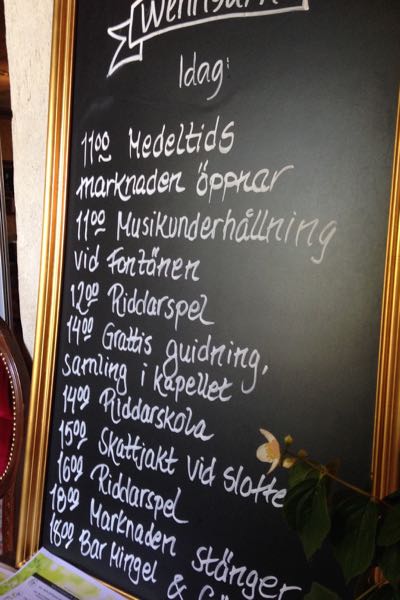 Idag:
1100 Medeltids
marknaden öppnar
11.00 Musikunderhållning
vid Fontänen
1200 Riddarspel
14 00 Grattis guidning,
samling i kapellet
1400 Riddarskola
1500 Skattjakt vid slotte
1600 Riddarspel
1800 Marknaden stänger
1800 Bar Mingel &